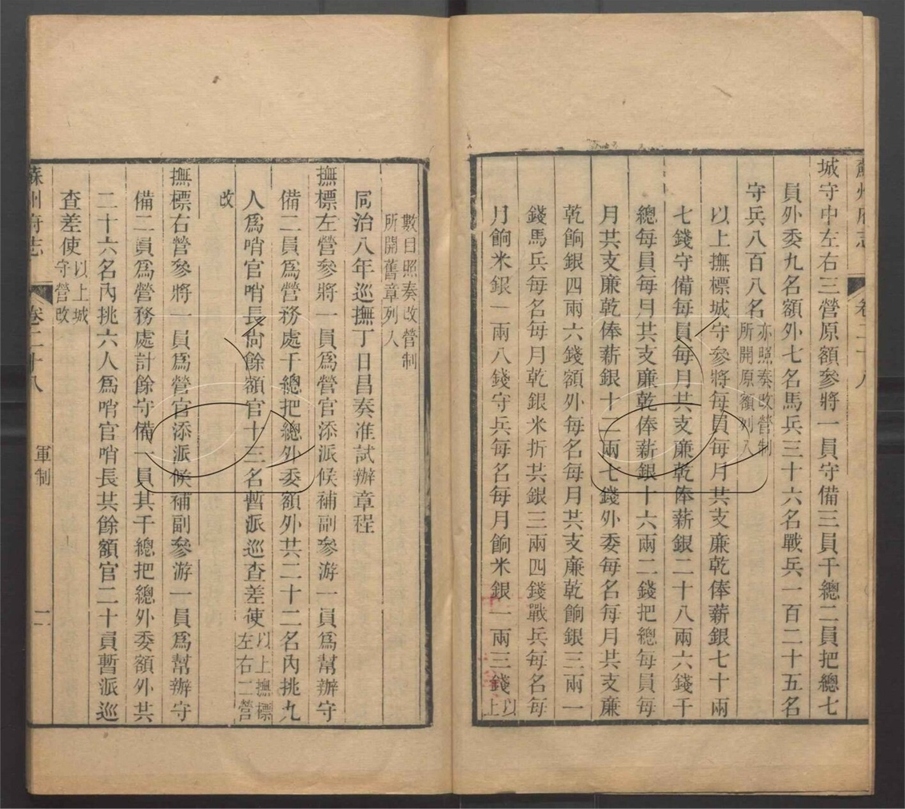 蘇州府志 卷二十八
城守中左右三營原額參將一員守備三員千總二員把總七
員外委九名額外七名馬兵三十六名戰兵一百二十五名
守兵八百八名亦照奏改營制所開原額列入
以上撫標城守參將每員每月共支廉乾俸薪銀七十兩
七錢守備每員每月共支廉乾俸薪銀二十八兩六錢千
總每員每月共支廉乾俸薪銀十六兩二錢把總每員每
月共支廉乾俸薪銀十二兩七錢外委每名每月共支廉
乾餉銀四兩六錢額外每名每月共支廉乾餉銀三兩一
錢馬兵每名每月乾銀米折共銀三兩四錢戰兵每名每
月餉米銀一兩八錢守兵每名每月餉米銀一兩三錢以上
數目照奏改營制所開舊章列入
同治八年巡撫丁日昌奏准試辦章程
撫標左營參將一員爲營官添派候補副參游一員爲幫辦守
備二員爲營務處千總把總外委額外共二十二名內挑九
人爲哨官哨長尚餘額官十三名暫派巡查差使以上撫標左右二營
改
撫標右營參將一員爲營官添派候補副參游一員爲幫辦守
備二員爲營務處計餘守備一員其千總把總外委額外共
二十六名內挑六人爲哨官哨長共餘額官二十員暫派巡
查差使以上城守營改
蘇州府志 卷二十八 軍制 二